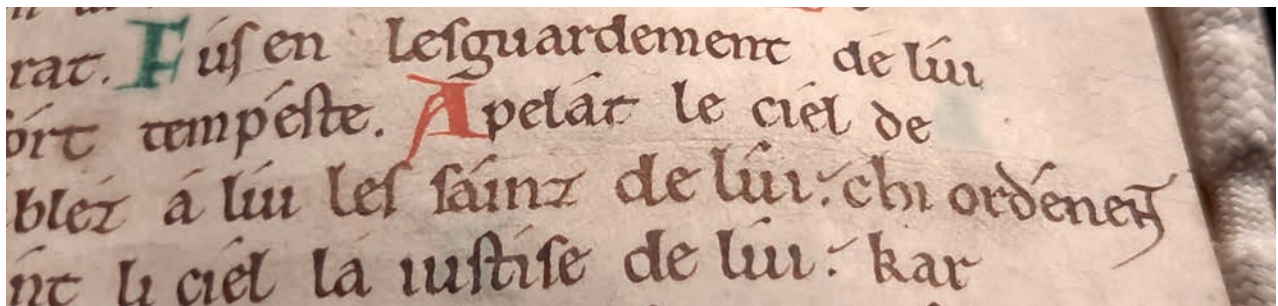 rat. Fus en lesguardement de lui
oit tempeste. Apelat le ciel de
blez a lui les sainz de lui: chi ordenent
nt li ciel la iustise de lui: kar